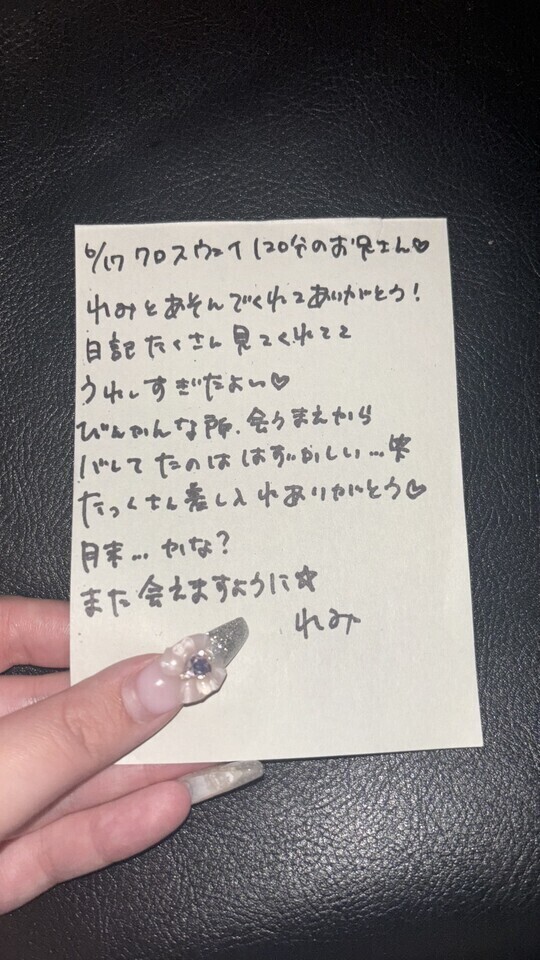 6/17 クロスウェイ 120分のお兄さん♡
れみとあそんでくれてありがとう!
日記たくさん見てくれてて
うれしすぎたよい♡
びんかんな所、会うまえから
バレてたのははずかしい...笑
たっくさん差し入れありがとう♡
月末...かな?
また会えますように☆
れみ